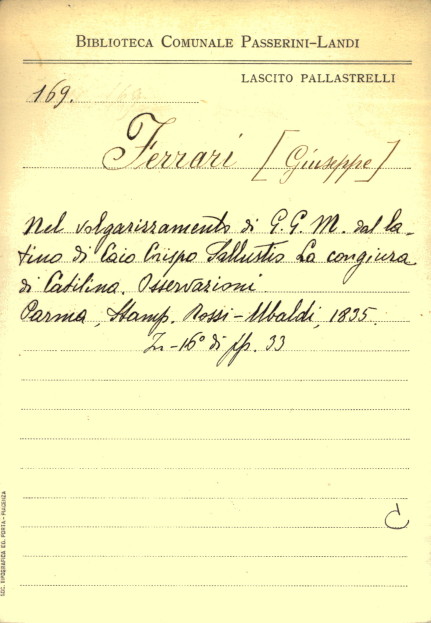 BIBLIOTECA COMUNALE PASSERINI-LANDI
LASCITO PALLASTRELLI
169.
Ferrari [Giuseppe]
Nel volgarizzamento di G. G. M. dal la-
tino di Caio Crispo Sallustio La congiura
di Catilina. Osservazioni
Parma, Stamp. Rossi-Ubaldi, 1835.
In-16° di pp. 33
C
SOC. TIPOGRAFICA ED. PORTA - PIACENZA